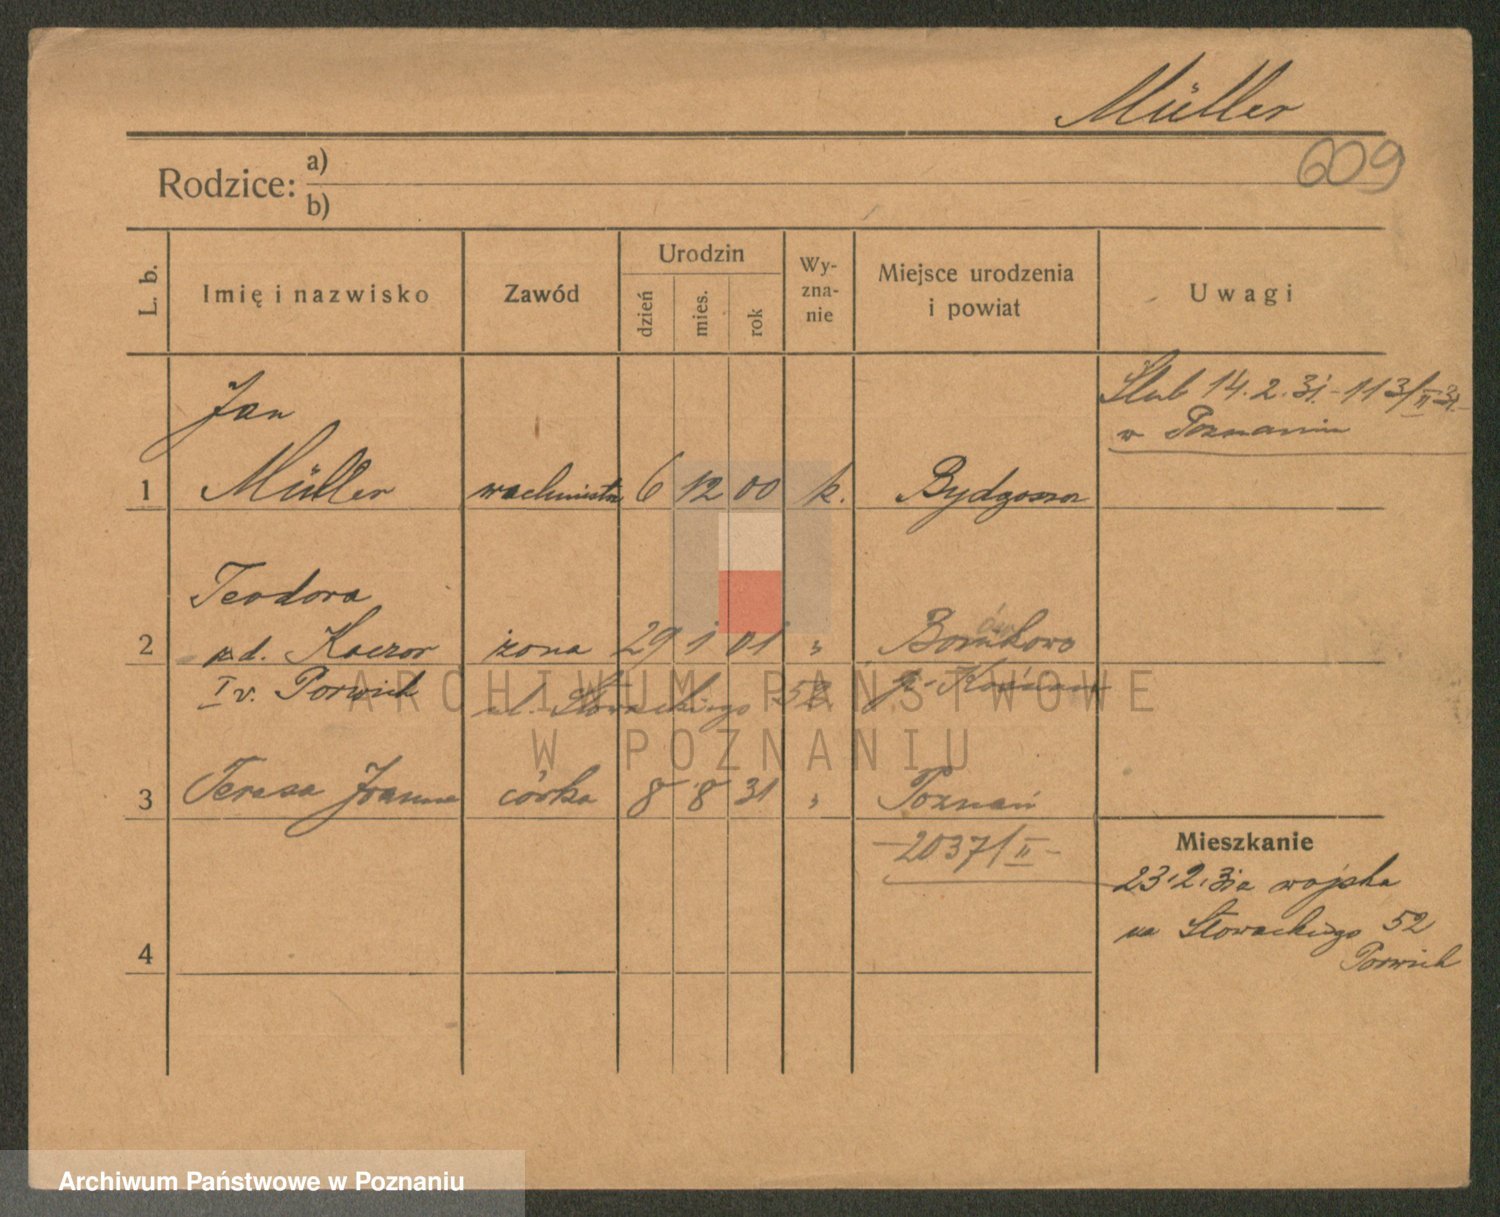 Müller
609
Rodzice: a)
b)
L. b. Imię i nazwisko Zawód Urodzin dzień mies. rok Wy-zna-nie Miejsce urodzenia i powiat Uwagi
Ślub 14.2.31. - 113/II 31.
w Poznaniu
Jan
1 Müller wachmistrz 6 12 00 k. Bydgoszcz
Teodora
2 z d. Kaczor żona 29 1 01 "
I v. Porwich ul. Słowackiego 52 p.
ARCHIWUM PAŃSTWOWE
W POZNANIU
3 Teresa Joanna córka 8 8 31 " Poznań
-2037/II-
Mieszkanie
23.2.31 z wojska
na Słowackiego 52
Porwich
4
Archiwum Państwowe w Poznaniu